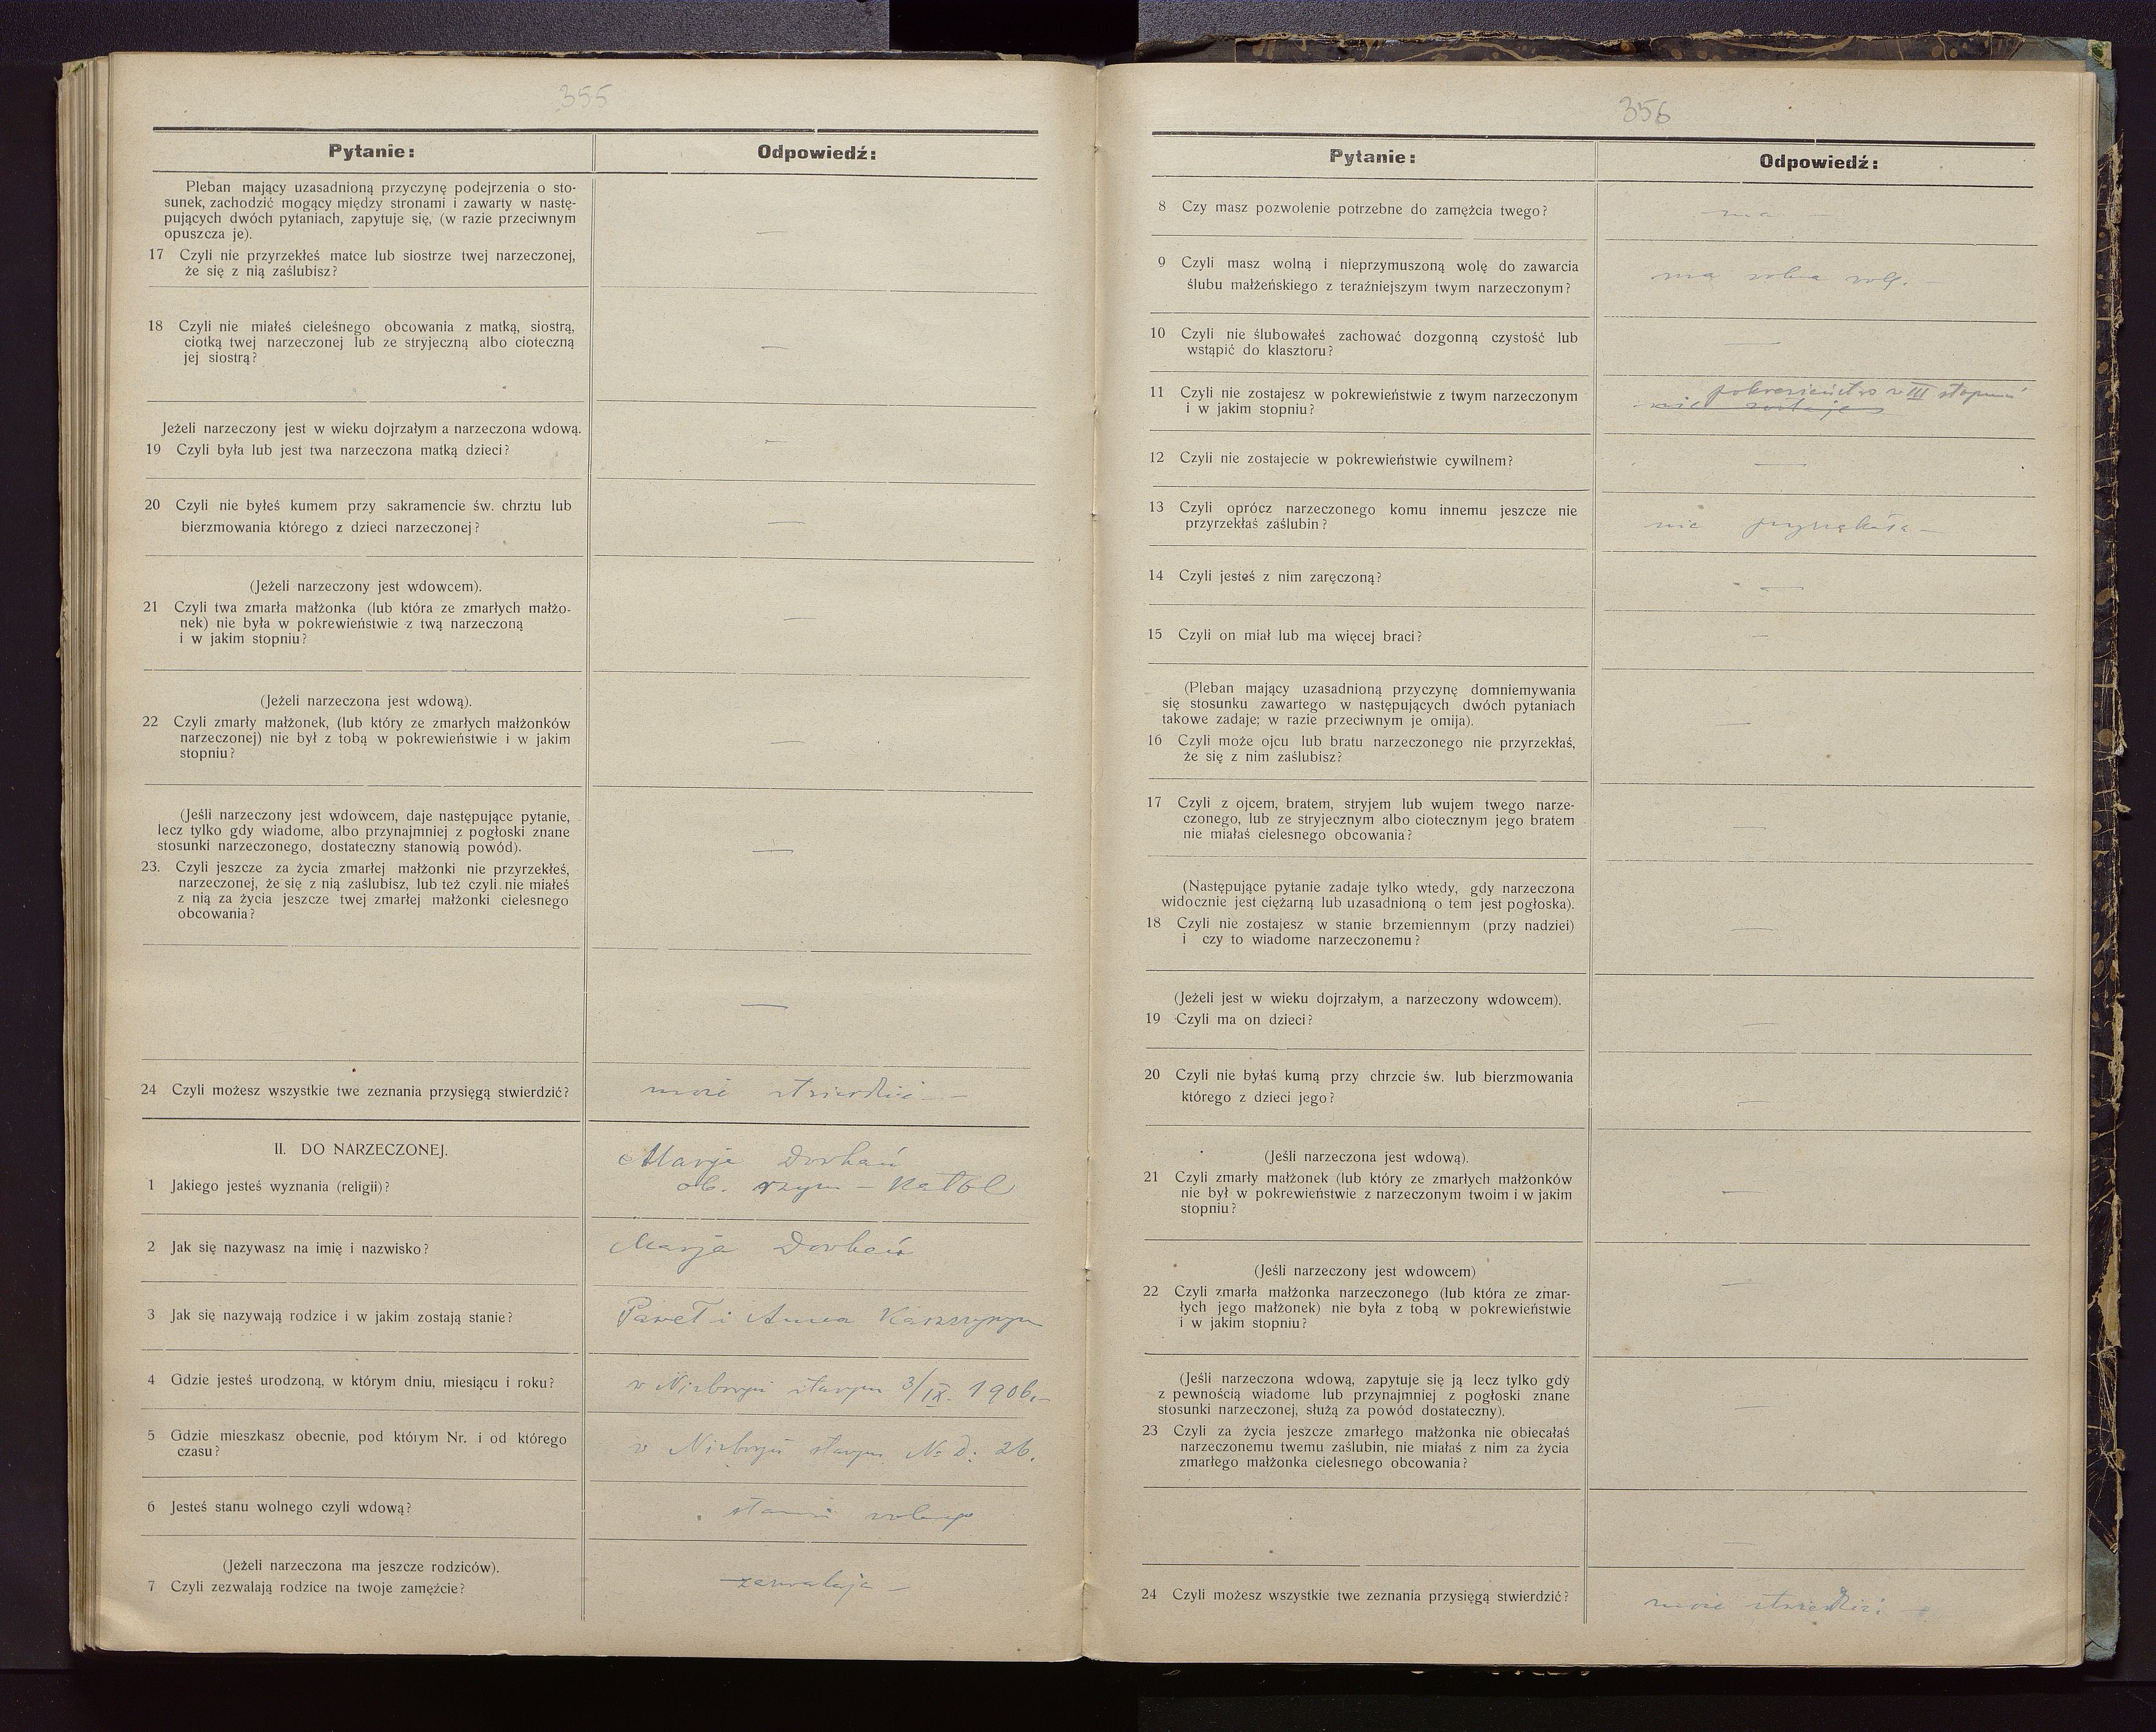 355
Pytanie:
Odpowiedź:
Pleban mający uzasadnioną przyczynę podejrzenia o sto-
sunek, zachodzić mogący między stronami i zawarty w nastę-
pujących dwóch pytaniach, zapytuje się, (w razie przeciwnym
opuszcza je).
—
17 Czyli nie przyrzekłeś matce lub siostrze twej narzeczonej,
że się z nią zaślubisz?
18 Czyli nie miałeś cieleśnego obcowania z matką, siostrą,
ciotką twej narzeczonej lub ze stryjeczną albo cioteczną
jej siostrą?
—
Jeżeli narzeczony jest w wieku dojrzałym a narzeczona wdową.
19 Czyli była lub jest twa narzeczona matką dzieci?
—
20 Czyli nie byłeś kumem przy sakramencie św. chrztu lub
bierzmowania którego z dzieci narzeczonej?
—
(Jeżeli narzeczony jest wdowcem).
21 Czyli twa zmarła małżonka (lub która ze zmarłych małżo-
nek) nie była w pokrewieństwie z twą narzeczoną
i w jakim stopniu?
—
(Jeżeli narzeczona jest wdową).
22 Czyli zmarły małżonek, (lub który ze zmarłych małżonków
narzeczonej) nie był z tobą w pokrewieństwie i w jakim
stopniu?
—
(Jeśli narzeczony jest wdowcem, daje następujące pytanie,
lecz tylko gdy wiadome, albo przynajmniej z pogłoski znane
stosunki narzeczonego, dostateczny stanowią powód).
—
23. Czyli jeszcze za życia zmarłej małżonki nie przyrzekłeś,
narzeczonej, że się z nią zaślubisz, lub też czyli nie miałeś
z nią za życia jeszcze twej zmarłej małżonki cielesnego
obcowania?
—
24 Czyli możesz wszystkie twe zeznania przysięgą stwierdzić?
może stwierdzić —
II. DO NARZECZONEJ.
1 Jakiego jesteś wyznania (religii)?
Marja Dorhań
ob. rzym – katol
2 Jak się nazywasz na imię i nazwisko?
Marja Dorhań
3 Jak się nazywają rodzice i w jakim zostają stanie?
Paweł i Anna
4 Gdzie jesteś urodzoną, w którym dniu, miesiącu i roku?
w Niżborgu starym 3/IX. 1906.—
5 Gdzie mieszkasz obecnie, pod którym Nr. i od którego
czasu?
w Niżborgu starym No D: 26.
6 Jesteś stanu wolnego czyli wdową?
stanu wolnego
(Jeżeli narzeczona ma jeszcze rodziców).
7 Czyli zezwalają rodzice na twoje zamężcie?
zezwalają —
356
Pytanie:
Odpowiedź:
8 Czy masz pozwolenie potrzebne do zamężcia twego?
ma —
9 Czyli masz wolną i nieprzymuszoną wolę do zawarcia
ślubu małżeńskiego z teraźniejszym twym narzeczonym?
ma wolną wolę. —
10 Czyli nie ślubowałeś zachować dozgonną czystość lub
wstąpić do klasztoru?
—
11 Czyli nie zostajesz w pokrewieństwie z twym narzeczonym
i w jakim stopniu?
pokrewieństwo w III stopniu
nie zostaje
12 Czyli nie zostajecie w pokrewieństwie cywilnem?
—
13 Czyli oprócz narzeczonego komu innemu jeszcze nie
przyrzekłaś zaślubin?
nie przyrzekła —
14 Czyli jesteś z nim zaręczoną?
—
15 Czyli on miał lub ma więcej braci?
—
(Pleban mający uzasadnioną przyczynę domniemywania
się stosunku zawartego w następujących dwóch pytaniach
takowe zadaje; w razie przeciwnym je omija).
—
16 Czyli może ojcu lub bratu narzeczonego nie przyrzekłaś,
że się z nim zaślubisz?
17 Czyli z ojcem, bratem, stryjem lub wujem twego narze-
czonego, lub ze stryjecznym albo ciotecznym jego bratem
nie miałaś cielesnego obcowania?
—
(Następujące pytanie zadaje tylko wtedy, gdy narzeczona
widocznie jest ciężarną lub uzasadnioną o tem jest pogłoska).
18 Czyli nie zostajesz w stanie brzemiennym (przy nadziei)
i czy to wiadome narzeczonemu?
—
(Jeżeli jest w wieku dojrzałym, a narzeczony wdowcem).
19 Czyli ma on dzieci?
—
20 Czyli nie byłaś kumą przy chrzcie św. lub bierzmowania
którego z dzieci jego?
—
(Jeśli narzeczona jest wdową).
21 Czyli zmarły małżonek (lub który ze zmarłych małżonków
nie był w pokrewieństwie z narzeczonym twoim i w jakim
stopniu?
—
(Jeśli narzeczony jest wdowcem)
22 Czyli zmarła małżonka narzeczonego (lub która ze zmar-
łych jego małżonek) nie była z tobą w pokrewieństwie
i w jakim stopniu?
—
(Jeśli narzeczona wdową, zapytuje się ją lecz tylko gdy
z pewnością wiadome lub przynajmniej z pogłoski znane
stosunki narzeczonej, służą za powód dostateczny).
—
23 Czyli za życia jeszcze zmarłego małżonka nie obiecałaś
narzeczonemu twemu zaślubin, nie miałaś z nim za życia
zmarłego małżonka cielesnego obcowania?
—
24 Czyli możesz wszystkie twe zeznania przysięgą stwierdzić?
może stwierdzić —